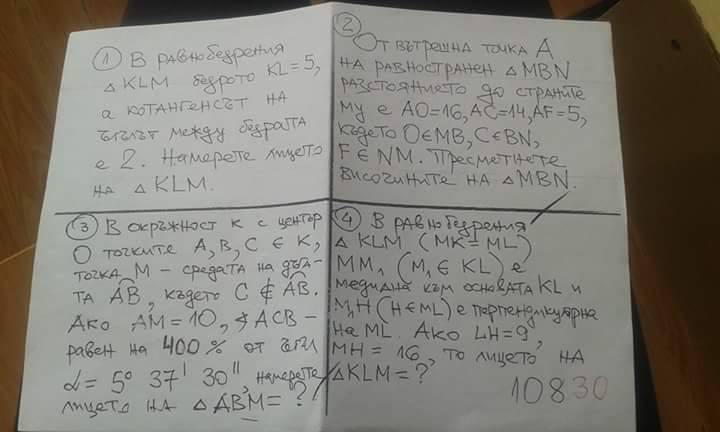 ① В равнобедрения
△ KLM бедрото KL=5,
а котангенсът на
ъгълът между бедрата
е 2. Намерете лицето
на △ KLM.
② От вътрешна точка A
на равностранен △ MBN
разстоянието до страните
му е AO=16, AC=14, AF=5,
където O∈MB, C∈BN,
F∈NM. Пресметнете
височините на △ MBN.
③ В окръжност к с център
O точките A, B, C ∈ K,
точка M – средата на дъга-
та AB, където C ∉ AB.
Ако AM=10, ∢ACB –
равен на 400% от ъгъл
α= 5° 37' 30'', намерете
лицето на △ ABM=?
④ В равнобедрения
△ KLM (MK=ML)
MM₁ (M₁ ∈ KL) е
медиана към основата KL и
M₁H (H∈ML) е перпендикулярна
на ML. Ако LH=9,
MH= 16, то лицето на
△KLM=?
10830